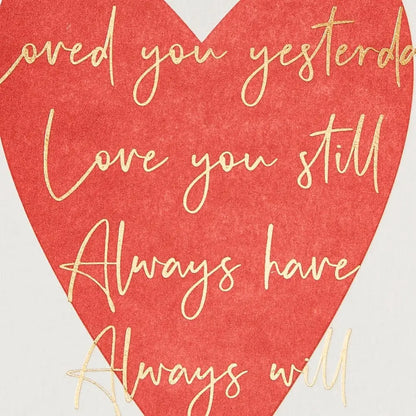 Loved you yesterda
Love you still
Always have
Always will